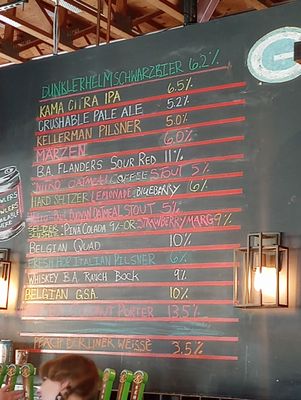 DUNKLERHELM SCHWARZBIER 6.2%
KAMA CITRA IPA 6.5%
CRUSHABLE PALE ALE 5.2%
KELLERMAN PILSNER 5.0%
MÄRZEN 6.0%
B.A. FLANDERS SOUR RED 11%
NITRO OATMEAL COFFEE STOUT 5%
HARD SELTZER LEMONADE BLUEBERRY 6%
OATMEAL STOUT 5%
SELTZER PINA COLADA 9% OR STRAWBERRY MARG 9%
BELGIAN QUAD 10%
FRESH HOP ITALIAN PILSNER 6%
WHISKEY B.A. RANCH BOCK 9%
BELGIAN GSA 10%
PORTER 13.5%
PEACH BERLINER WEISSE 3.5%
G